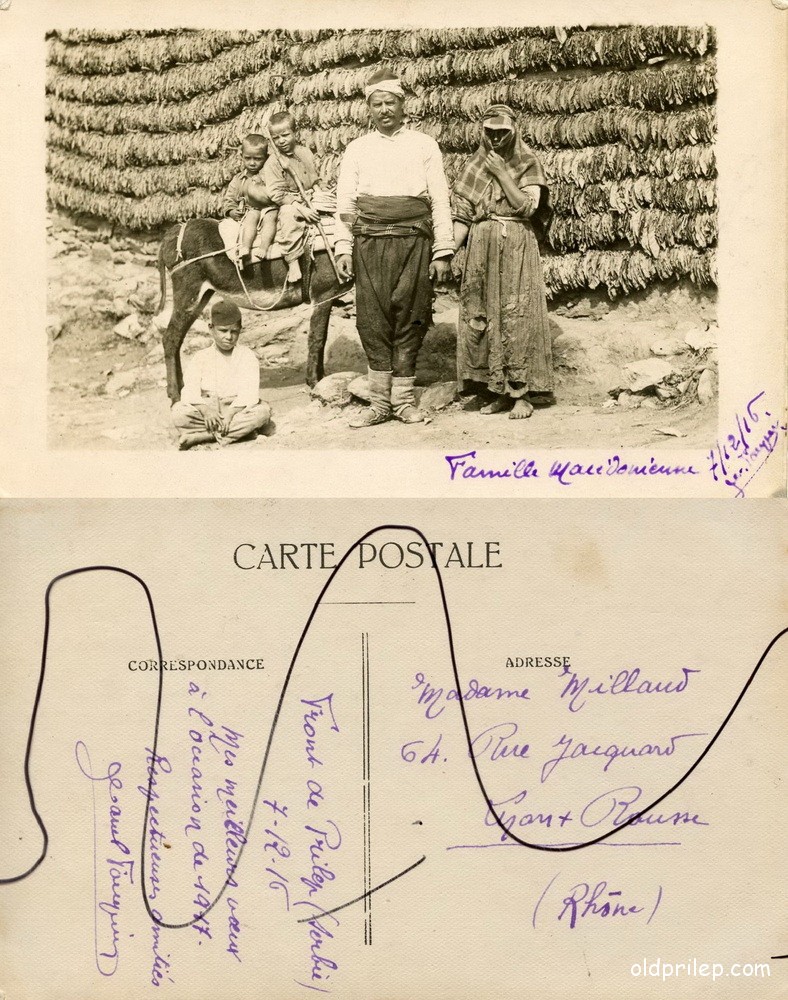 Famille Macédonienne 7/12/16.
CARTE POSTALE
CORRESPONDANCE
ADRESSE
Front de Prilep (Serbie)
7-12-16
Mes meilleurs vœux
à l'occasion de 1917.
Respectueuses amitiés
Madame Millaud
64. Rue Jacquard
Rousse
(Rhône)
oldprilep.com